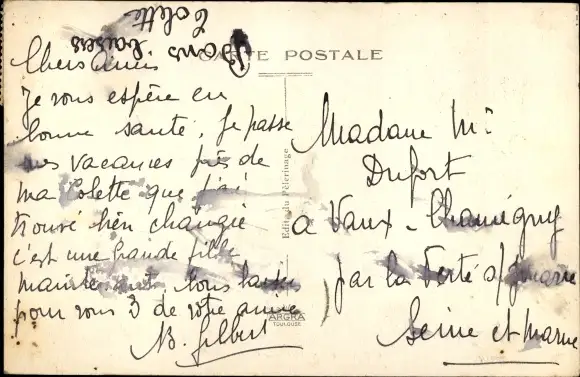 Bons
baisers
Colette
CARTE POSTALE
Chers amis
Je vous espère en
bonne santé, je passe
mes vacances près de
ma Colette que j'ai
trouvé bien changée
c'est une grande fille
maintenant. Bons baisers
pour vous 3 de votre amie
B. Gilbert
Madame Mr
Dufort
a Vaux-
par la Ferté s/Jouarre
Seine et Marne
Edit. du Pèlerinage
ARGRA
TOULOUSE